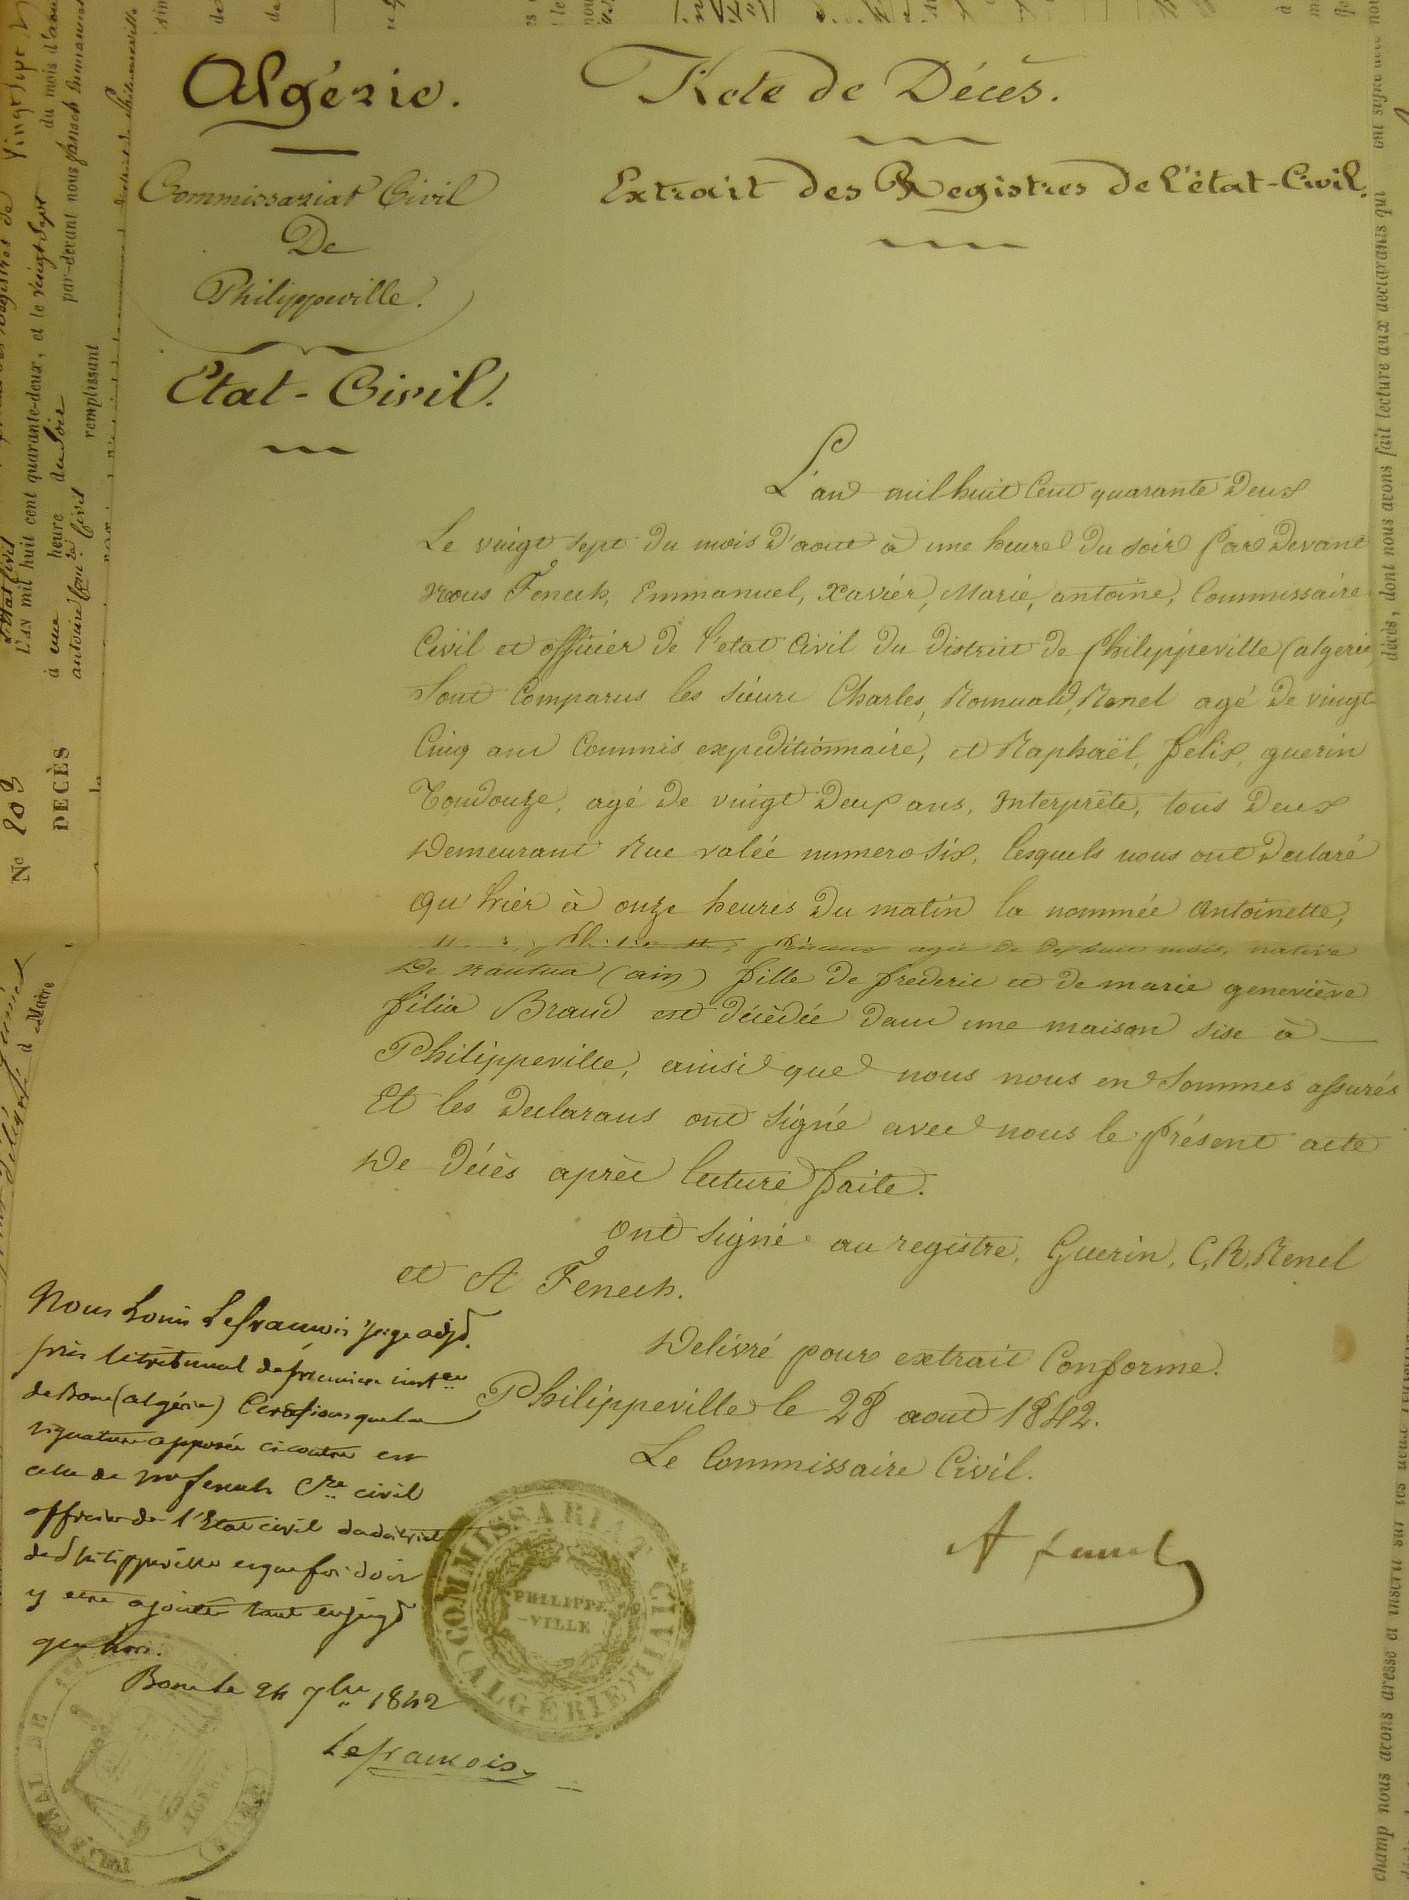 Algérie.
Commissariat Civil
De
Philippeville.
Etat-Civil.
Acte de Décès.
Extrait des Registres de l'état-Civil.
L'an mil huit Cent quarante Deux
Le vingt sept du mois D'aout à une heure du soir par Devant
nous Fenech, Emmanuel, Xavier, Marie, antoine, Commissaire
Civil et officier de l'etat Civil du District de philippeville (algerie)
Sont Comparus les sieurs Charles, Romuald, Renel agé de vingt
Cinq ans Commis expeditionnaire, et Raphaël, felix, guerin
Toudouze, agé de vingt Deux ans, Interprète, tous Deux
Demeurant Rue valée numero six, lesquels nous ont Declaré
qu'hier à onze heures du matin la nommée Antoinette,
agée de dix huit mois, native
De nantua (ain) fille de frederic et de marie geneviève
filia Braud est décèdée dans une maison sise à
Philippeville, ainsi que nous nous en sommes assurés
Et les Declarans ont signé avec nous le présent acte
De Décès après lecture faite.
ont signé au registre, Guerin, C.R. Renel
et A Fenech.
Delivré pour extrait Conforme.
Philippeville le 28 aout 1842.
Le Commissaire Civil.
A fenech
Nous Louis Lefrancois Juge adjt.
près le tribunal de première instce
de Bone (algérie) Certifions que la
signature apposée ci contre est
celle de Mr fenech Cre civil
officier de l'Etat civil du district
de Philippeville et que foi doit
y etre ajoutée tant en jugt
que hors.
Bone le 24 7bre 1842
Lefrancois
COMMISSARIAT CIVIL
PHILIPPE-
VILLE
(ALGÉRIE)
TRIBUNAL DE
ALGERIE
No 203
DECÈS
L'AN mil huit cent quarante-deux, et le vingt sept
du mois d'aout
à une heure du soir
par-devant nous fenech Emmanuel
antoine
remplissant
Maire
décès, dont nous avons fait lecture aux déclarants qui ont signé avec nous
champ nous avons dressé et inscrit sur les deux